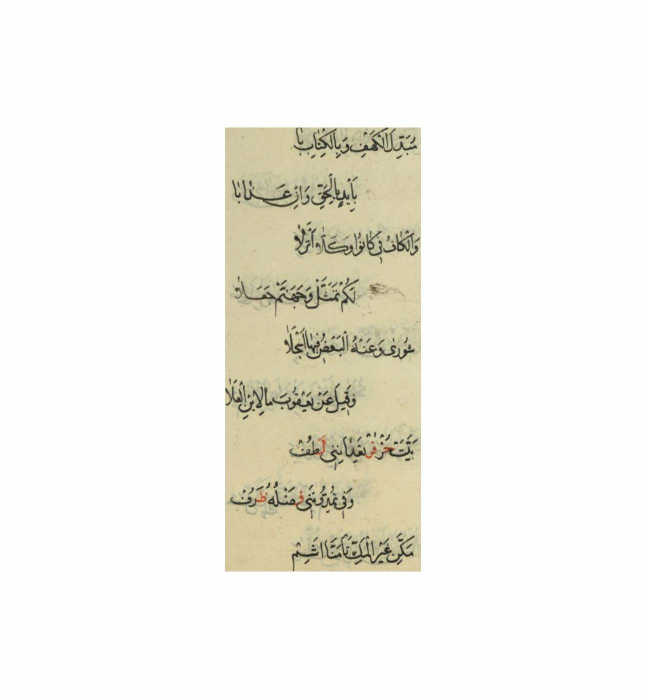 مُبَدِّلَ الْكَهْفِ وَبِالْكِتَابِ بَا
بَأَيْدٍ بِالْحَقِّ وَاِنْ عَذَابَا
وَالْكَافُ فِي كَانُوا وَكَلَّا أَنْزَلَا
لَكُمْ تَمَثَّلْ وَجَهَنَّمْ جَعَلَا
شُورَى وَعَنْهُ الْبَعْضُ فِيهَا أَسْجَلَا
وَقِيلَ عَنْ يَعْقُوبَ مَا لِابْنِ الْعَلَا
بَيَّتَ حُزْ فُزْ تَعِدَانِنِي لَطُفْ
وَفِي تُمِدُّونَنِي فَضْلُهُ ظَرُفْ
مَكَّنِّ غَيْرُ الْمَكِّ تَأْمَنَّا أَشِمّْ